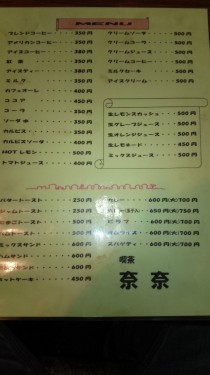 MENU
ブレンドコーヒー・・・・350円
アメリカンコーヒー・・・350円
アイスコーヒー・・・・・380円
紅茶・・・・・350円
アイスティー・・・・・380円
ミルク・・・・・350円
カフェオーレ・・・・・400円
ココア・・・・・450円
コーラ・・・・・400円
ソーダ水・・・・・350円
カルピス・・・・・350円
カルピスソーダ・・・・・400円
HOTレモン・・・・・500円
トマトジュース・・・・・400円
クリームソーダ・・・・・500円
クリームコーラ・・・・・500円
クリームジュース・・・・500円
ミルクセーキ・・・・・500円
アイスクリーム・・・・・350円
生レモンスカッシュ・・・500円
生グレープジュース・・・500円
生オレンジジュース・・・500円
生レモネード・・・・・450円
ミックスジュース・・・・500円
バタートースト・・・・・250円
ジャムトースト・・・・・250円
トースト・・・・・500円
ミックスサンド・・・・・600円
ハムサンド・・・・・600円
サンド・・・・・600円
ホットケーキ・・・・・450円
カレー・・・・・600円(大)700円
600円(大)750円
ピラフ・・・・・600円(大)700円
オムライス・・・・・600円(大)700円
スパゲティ・・・・・600円(大)700円
喫茶
奈奈